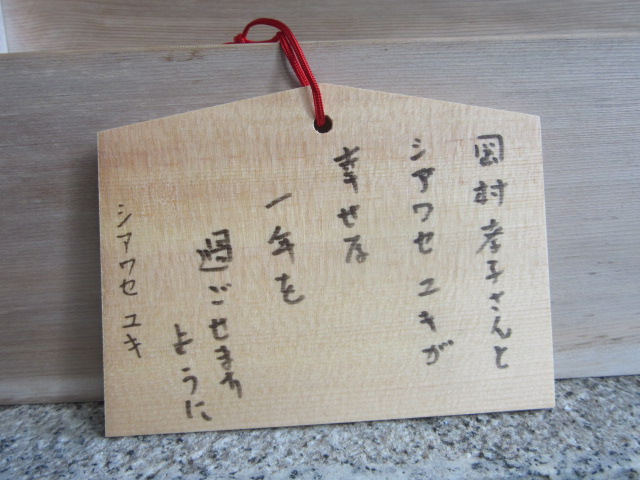 岡村孝子さんと
シアワセ ユキが
幸せな
一年を
過ごせます
ように
シアワセ ユキ